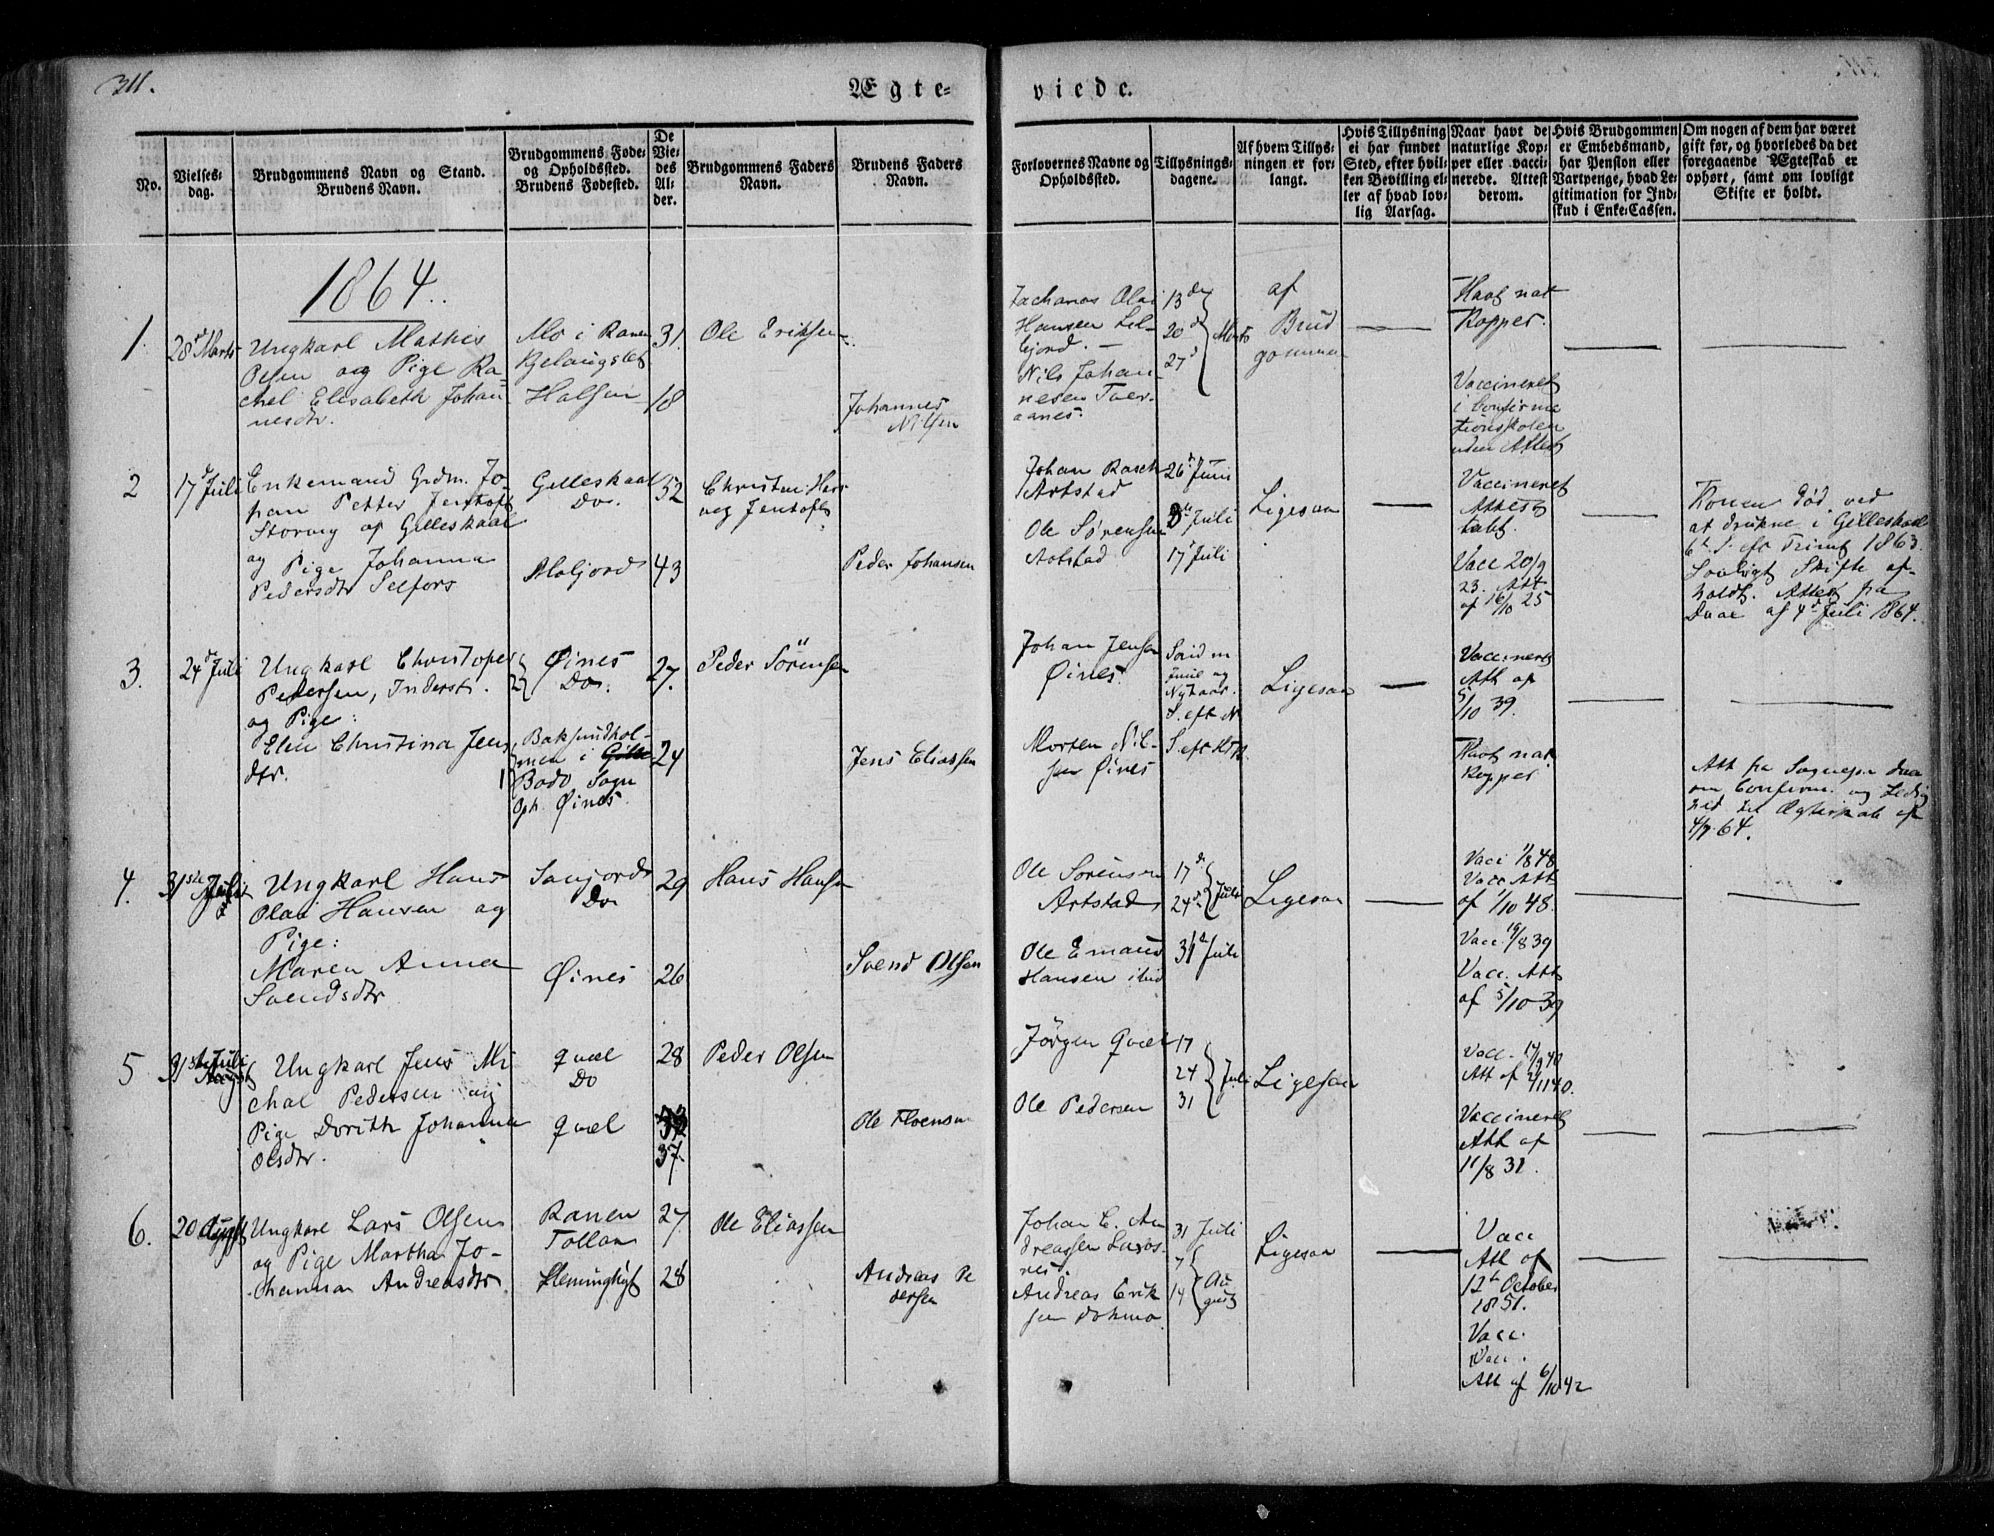 311.
Ægte-
viede.
No.
Vielses-
dag.
Brudgommens Navn og Stand.
Brudens Navn.
Brudgommens Føde-
og Opholdssted.
Brudens Fødested.
De
Vie-
des
Al-
der.
Brudgommens Faders
Navn.
Brudens Faders
Navn.
Forlovernes Navne og
Opholdssted.
Tillysnings-
dagene.
Af hvem Tillys-
ningen er for-
langt.
Hvis Tillysning
ei har fundet
Sted, efter hvil-
ken Bevilling el-
ler af hvad lov-
lig Aarsag.
Naar havt de
naturlige Kop-
per eller vacci-
nerede. Attest
derom.
Hvis Brudgommen
er Embedsmand,
har Pension eller
Vartpenge, hvad Le-
gitimation for Ind-
skud i Enke-Cassen.
Om nogen af dem har været
gift før, og hvorledes da det
foregaaende Ægteskab er
ophørt, samt om lovligt
Skifte er holdt.
1864.
1.
28d Marts
Ungkarl Mathis
Olsen og Pige Ra-
chel Elisabeth Johan
nesdtr.
Mo i Ranen
31.
18
Ole Eriksen
Johannes
Nilsen
Zacharias Olai
Hansen Lil-
Nils Johan-
nesen
13de
20d
27d
Marts
af
Brud
gommen
Havt nat
Kopper.
Vaccineret
i Confirma
tionsskolen
uden Attest
2
17d Juli
Enkemand Grdm. Jo-
han Petter Jentoft
Storvig af Gilleskaal
og Pige Johanna
Pedersdtr Selfors
Gilleskaal
Do.
52
43
Christen Har
veg Jentoft
Peder Johansen
Johan Rasch
Artstad
Ole Sørensen
Artstad
26d Juni
3d Juli
17d Juli
Ligesaa
Vaccineret
Attest
tabt.
Vacc 20/9
23. Att
af 16/10 25
Konen død ved
at drukne i Gilleskaal
6te S. eft Trinit 1863.
Lovligt Skifte af-
holdt. Attest fra
Daae af 4d Juli 1864.
3.
24de Juli
Ungkarl Christopher
Pedersen, Inderst.
og Pige:
Elen Christina Jens
dtr.
2
Øines
Do.
1
Baksundhol-
men i
Bodø Sogn
Oph. Øines.
27.
24
Peder Sörensen
Jens Eliassen
Johan Jensen
Øines.
Morten Nil-
sen Øines
Ligesaa
Vaccineret
Att af
5/10 39.
Havt nat
Kopper
Att fra Sognepr Daa
om Confirm. og Ledig
hed til Ægteskab af
4/7 64.
4.
31ste Juli
Ungkarl Hans
Olai Hansen og
Pige:
Maren Anna
Svendsdtr
Do
Øines
29
26
Hans Hansen
Svend Olsen
Ole Sørensen
Artstad
Ole Emanuel
Hansen ibid
17de
24de
Juli
31d Juli
Ligesaa
Vacc 1/8 48.
Vacc Att
af 1/10 48.
Vacc. 19/8 39
Vacc. Att
af 5/10 39
5
31ste Juli
Ungkarl Jens Mi
chal Pedersen og
Pige Dorith Johanna
Olsdtr.
Qvæl
Do
Qvæl
28
37.
Peder Olsen
Ole Floensen
Jørgen Qvæl
Ole Pedersen
17
24
31
Juli
Ligesaa
Vacc. 17/9 40
Att af 2/11 40.
Vaccineret
Att af
11/8 31.
6.
20 Augst
Ungkarl Lars Olsen
og Pige Martha Jo-
hanna Andreasdtr.
Ranen
28
27
Ole Eliassen
Andreas Pe
dersen
Johan C. An
dreassen Luros-
nes.
Andreas Erik
sen
31 Juli
7
14
Au
gust
Ligesaa
Vacc
Att af
12te October
1851.
Vacc.
Vacc.
Att af 6/10 42